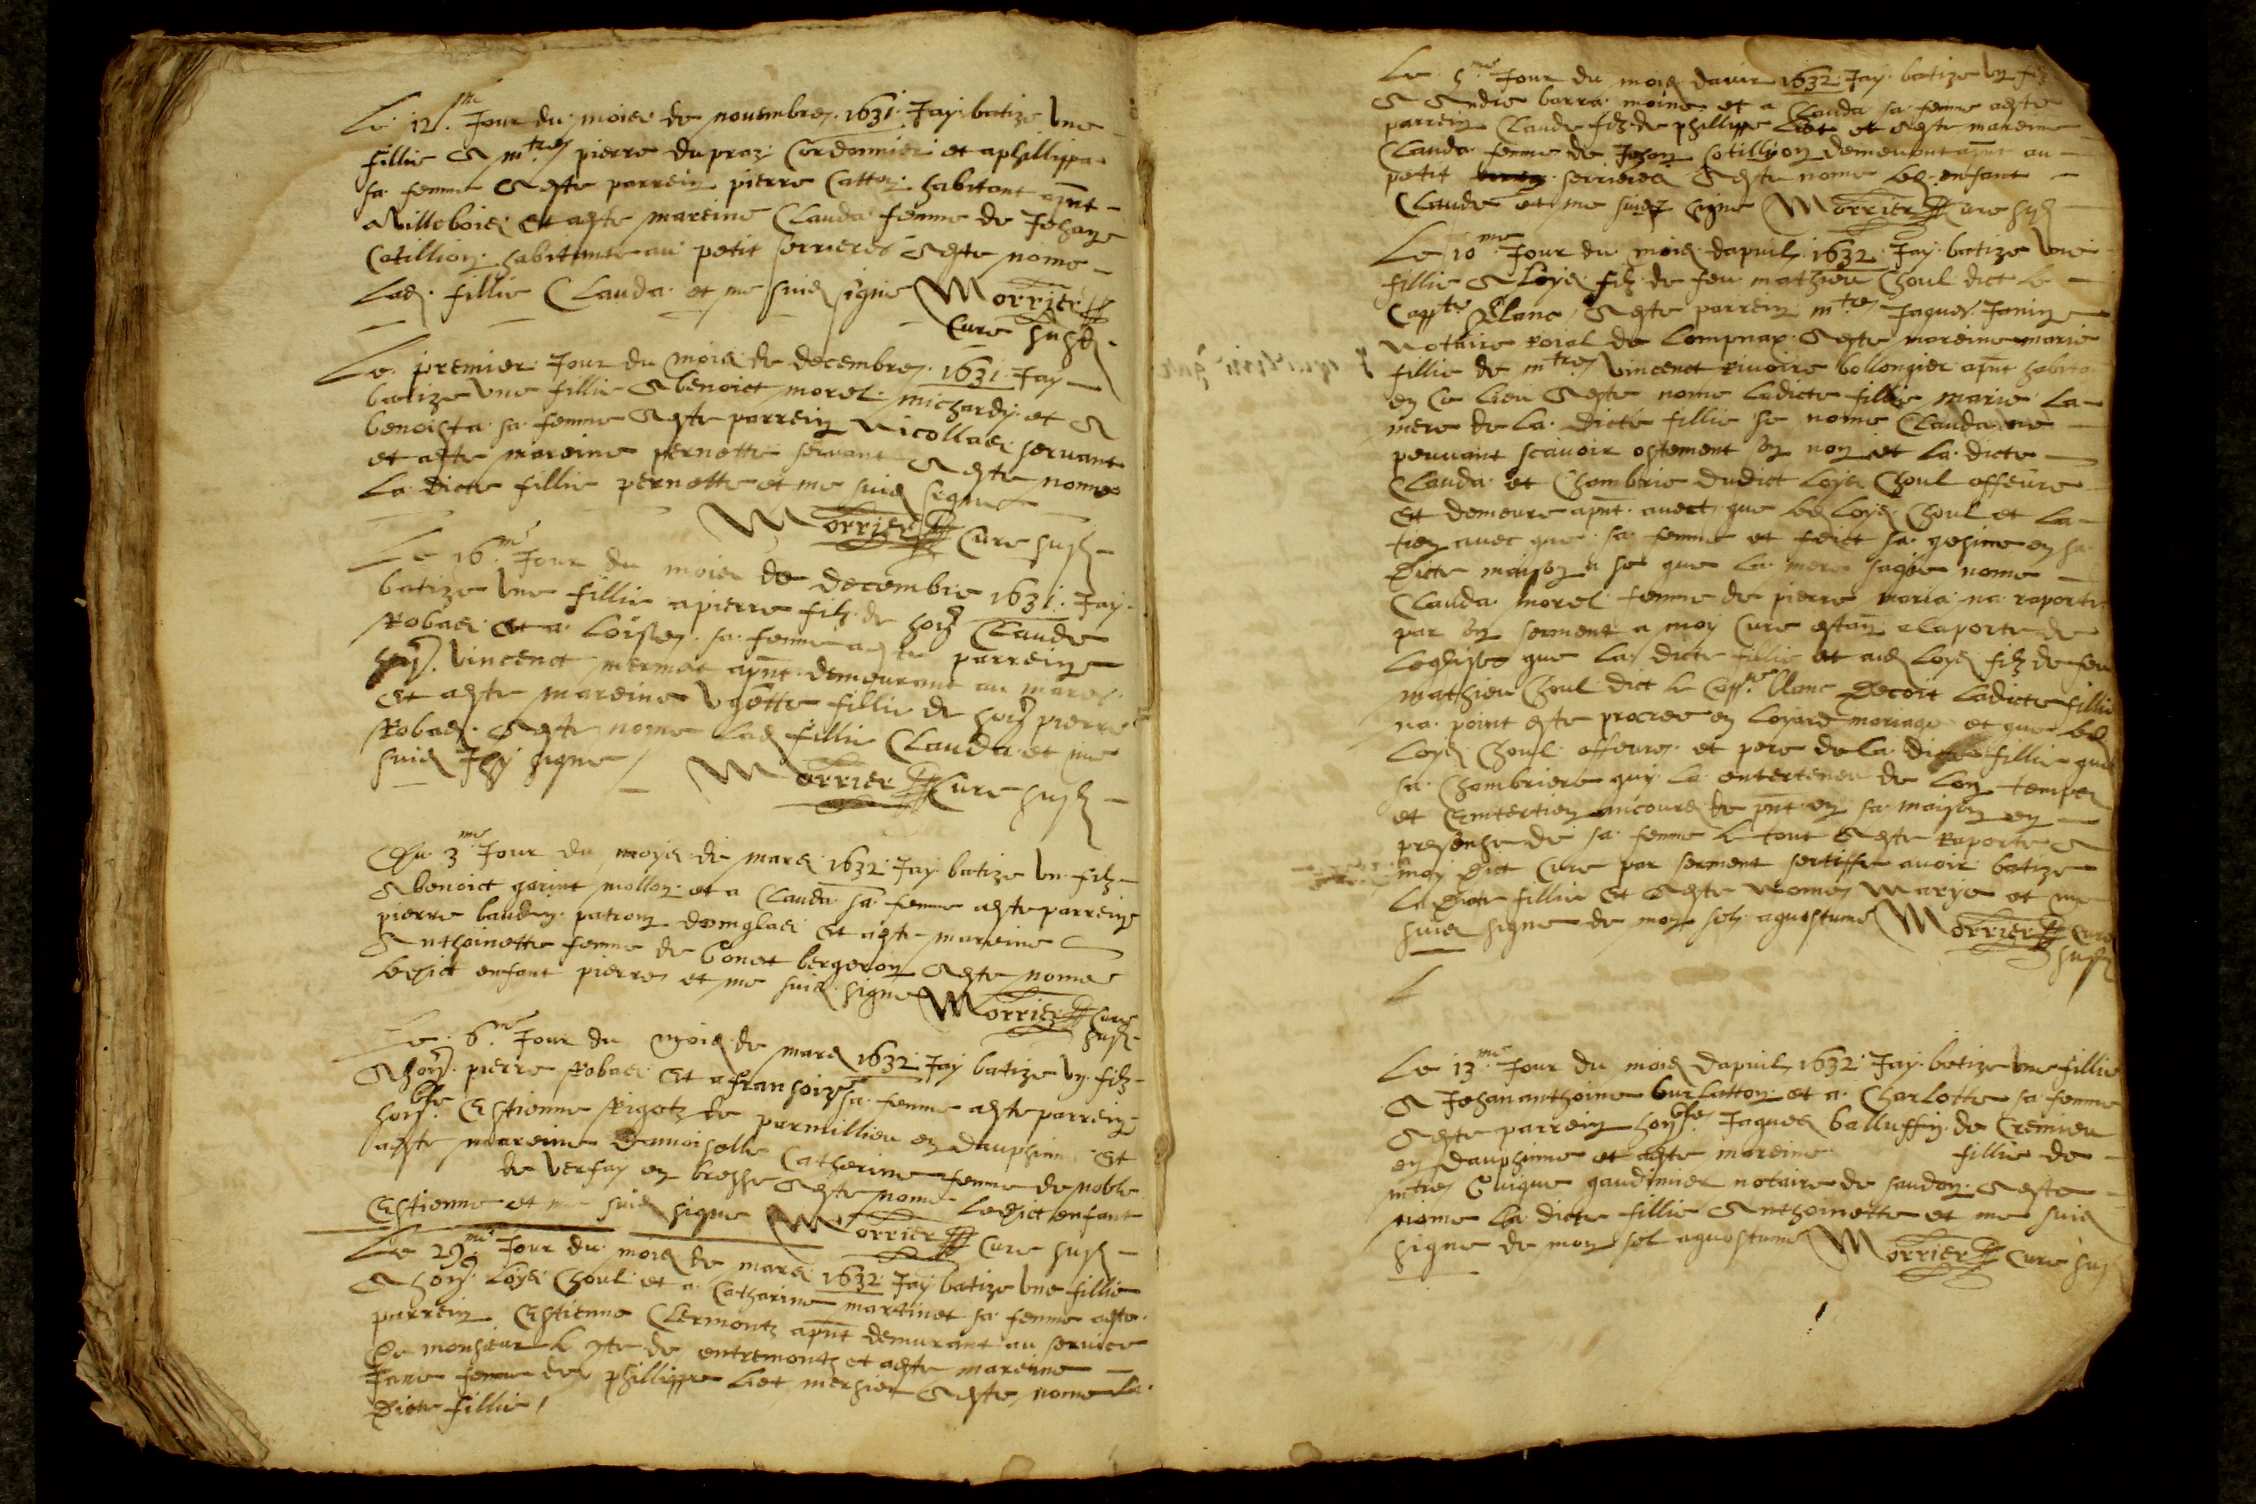 Le 12.me Jour du mois de novembre 1631 Jay batize une
fillie A mtre pierre du praz Cordonnier et a phillippa
sa femme A este parrein pierre Catton habitant apnt
A villebois et a este mareine Clauda femme de Jehan
Cotillion habitante au petit serrieres A este nome
lad. fillie Clauda et me suis signe Morrier
Cure susd.
Le premier Jour du mois de decembre 1631 Jay
batize une fillie A benoict morel michardy et A
benoista sa femme A este parrein Nicollas servant
et a este mareine pernette servante A este nome
la dicte fillie pernette et me suis signe
Morrier Cure susd
Le 16.me Jour du mois de decembre 1631 Jay
batize une fillie a pierre filz de hon Claude
Robas et a Loise sa femme a este parrein
hon. vincenct mermet apnt demeurant au mares
et a este mareine ugette fillie de hon pierre
Robas A este nome lad fillie Clauda et me
suis Icy signe Morrier Cure susd
Du 3.me Jour du moys de mars 1632 Jay batize un filz
A benoict garint mollon et a Clauda sa femme a este parrein
pierre baudin patron domglas et a este mareine
Anthoinette femme de bonet bergeron A este nome
ledict enfant pierre et me suis signe Morrier Cure
susd
Le 6.me Jour du mois de mars 1632 Jay batize un filz
A hon. pierre Robas et a fransoize sa femme a este parrein
honble Estienne Rigotz de parmillieu en dauphine et
a este mareine damoiselle Catherine femme de noble
de verfay en bresse A este nome ledict enfant
Estienne et me suis signe Morrier Cure susd
Le 29.me Jour du mois de mars 1632 Jay batize une fillie
A hon. Loys Choul et a Catharine martinet sa femme a este
parrein Estienne Clermontz apnt demurant au service
De monsieur le de entremontz et a este mareine
Jane femme de phillippe Liet mersier A este nome la
dicte fillie
Le 5.me Jour du mois davril 1632 Jay batize un filz
A Andre barra moine et a Clauda sa femme a este
parrein Claude filz de phillippe Liet et A este mareine
Clauda femme de Jehan Cotillyon demeurant apnt au
petit serrieres A este nome led. enfant
Claude et me suis signe Morrier Cure susd
Le 10.me Jour du mois dapvril 1632 Jay batize une
fillie A Loys filz de feu mathieu Choul dict le
Cappne blanc A este parrein mtre Jaques Janin
Notaire roial de Lompnax A este mareine marie
fillie de mtre vincenct rivoire bollongier apnt habita
en Ce lieu A este nome ladicte fillie marie la
mere de la dicte fillie se nome Clauda ne
peuvant scavoir ostement son non et la dicte
Clauda et Chambrie dudict Loys Choul affeure
et demeure apnt avect que led Loys Choul et la
tien avec que sa femme et feict sa gesine en sa
dicte maison a se que la mere sagie nome
Clauda morel femme de pierre maria na raporte
par son serment a moy Cure estan a la porte de
leglise que la dicte fillie et aud Loys filz de feu
mathieu Choul dict le Cappne blanc Decoit ladicte fillie
na point este procree en loyard mariage et que led
Loys Choul affeure et pere de la dicte fillie que
sa Chambriere quy la entertenu de lon temps
et Entertien ancoure de pnt en sa maison en
presense de sa femme le tout A este Raporte A
moy dict Cure par serment sertiffie avoir batize
la dicte fillie et A este nome Marye et me
suis signe de mon sel aquostume Morrier Cure
susd
L
Le 13.me Jour du mois dapvril 1632 Jay batize une fillie
A Jehan anthoine burlatton et a Charlotte sa femme
A este parrein honble Jaques balluffin de Cremieu
en dauphinne et a este mareine fillie de
mtre Guigue gaudimier notaire de saudon A este
nome la dicte fillie Anthoinette et me suis
signe de mon sel aquostume Morrier Cure sus